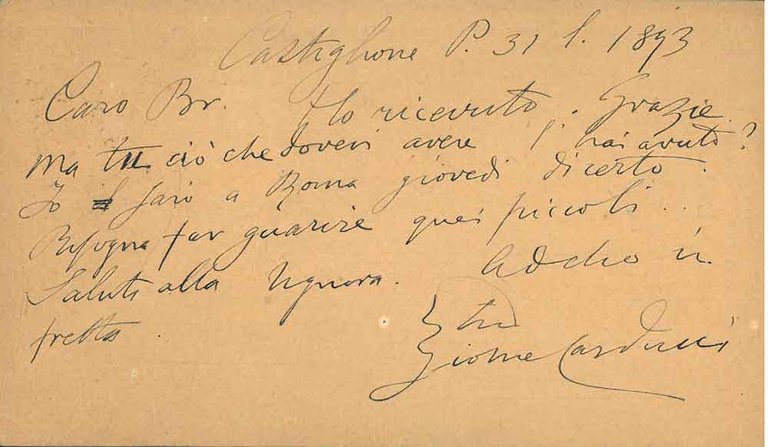 Castiglione P. 31 l. 1893
Caro Br. Ho ricevuto. Grazie.
Ma tu ciò che dovevi avere l'hai avuto?
Io sarò a Roma giovedì di certo.
Bisogna far guarire quei piccoli..
Saluti alla signora. Addio in
fretta.
tuo
Giosue Carducci